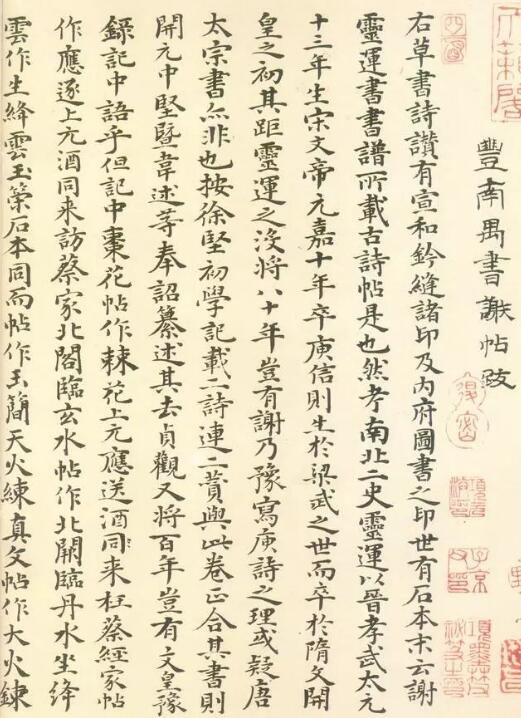 豐南禺書謝帖跋
右草書詩讚有宣和鈐縫諸印及內府圖書之印世有石本末云謝
靈運書書譜所載古詩帖是也然考南北二史靈運以晉孝武太元
十三年生宋文帝元嘉十年卒庾信則生於梁武之世而卒於隋文開
皇之初其距靈運之沒將八十年豈有謝乃豫寫庾詩之理或疑唐
太宗書亦非也按徐堅初學記載二詩連二贊與此卷正合其書則
開元中堅暨韋述等奉詔纂述其去貞觀又將百年豈有文皇豫
錄記中語乎但記中棗花帖作棘花上元應送酒同来枉蔡經家帖
作應逐上元酒同来訪蔡家北閣臨玄水帖作北闕臨丹水坐絳
雲作生絳雲玉策石本同而帖作玉簡天火練真文帖作大火鍊